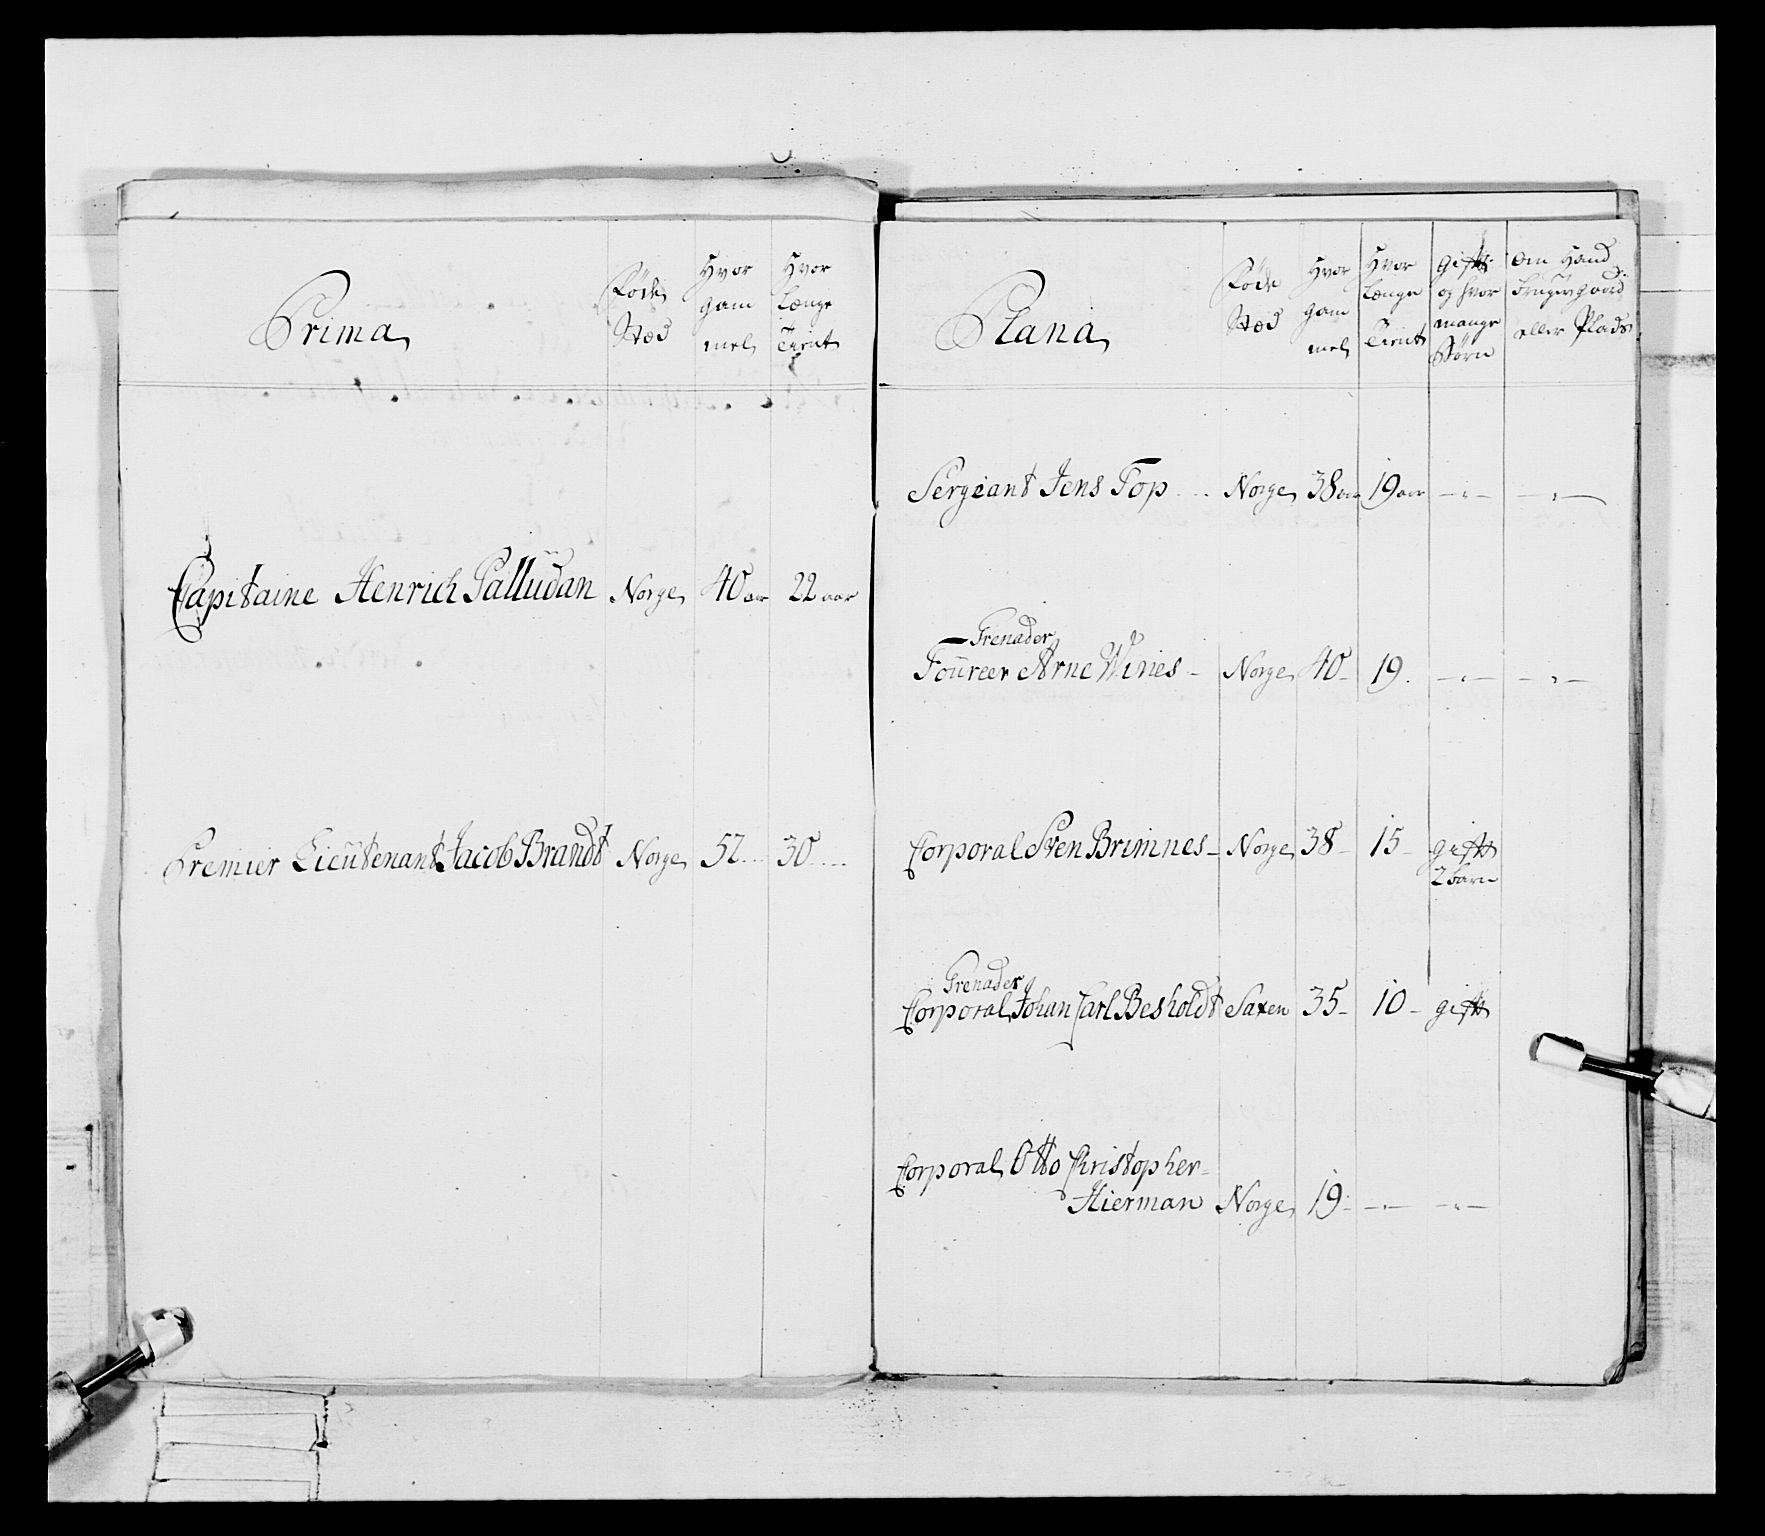 Prima
Føde
Stæd
Hvor
gam
mel
Hvor
Længe
Tient
Capitaine Henrich Palludan Norge 40 aar 22 aar
Premier Lieutenant Jacob Brandt Norge 52 30
Plana
Føde
Stæd
Hvor
gam
mel
Hvor
Længe
Tient
gift
og hvor
mange
Børn
om Hand
bruger gaard
eller Plads
Sergeant Jens Top Norge 38 aar 19 aar
Grenader
Foureer Arne Wines Norge 40 19
Corporal Sven Brimnes Norge 38 15 gift
2 barn
Grenader
Corporal Johan Carl Besholdt Saxen 35 10 gift
Corporal Otto Christopher
Hierman Norge 19